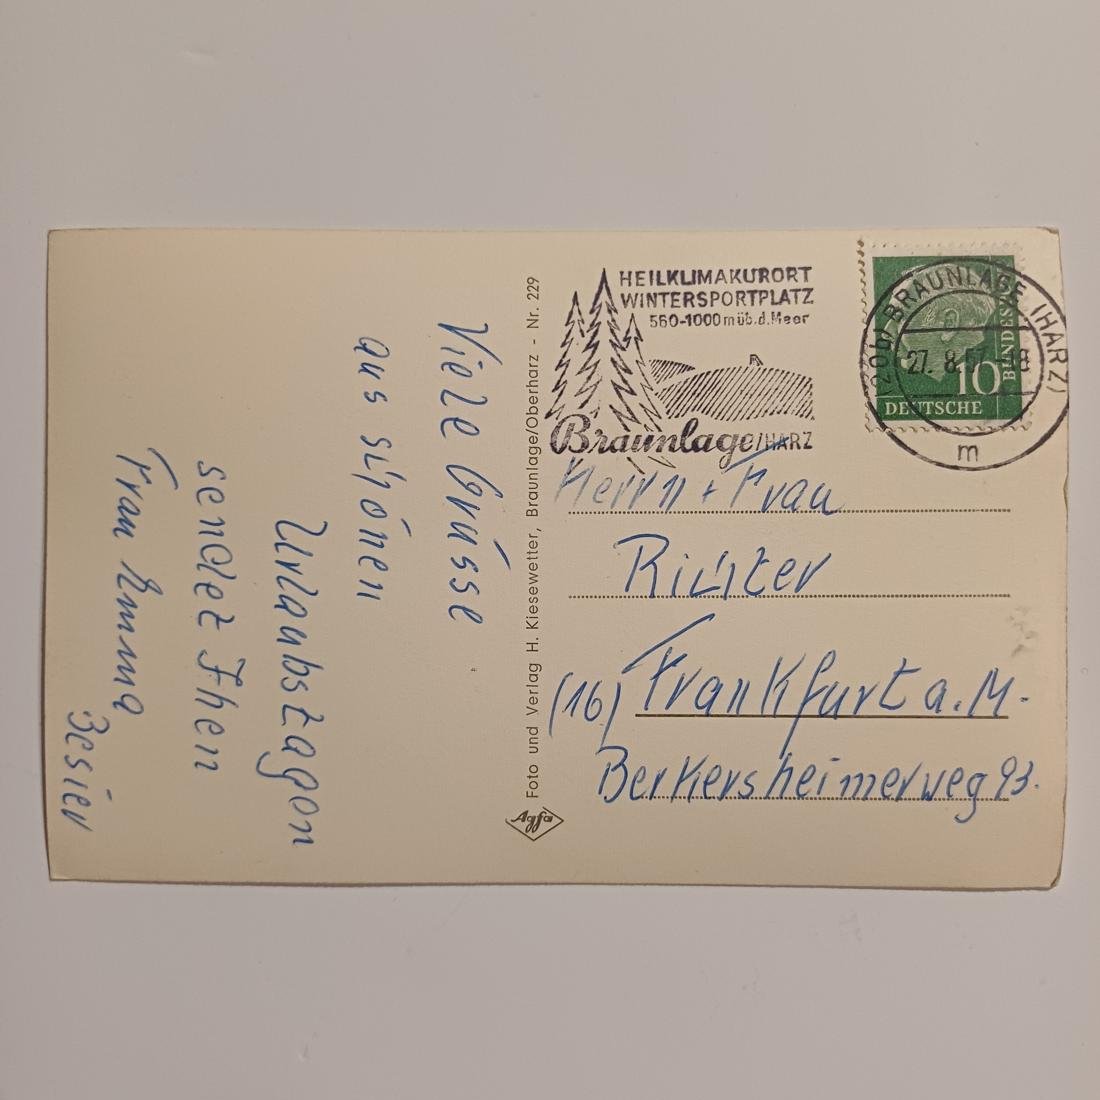 Viele Grüsse
aus schönen
Urlaubstagen
sendet Ihnen
Frau Emma
Besier
Foto und Verlag H. Kiesewetter, Braunlage/Oberharz - Nr. 229
Agfa
HEILKLIMAKURORT
WINTERSPORTPLATZ
560-1000 m üb.d.Meer
Braunlage/HARZ
(20b) BRAUNLAGE (HARZ)
27. 8.57 -18
m
10
DEUTSCHE
BUNDES
Herrn + Frau
Richter
(16) Frankfurt a. M.
Berkersheimerweg 93.